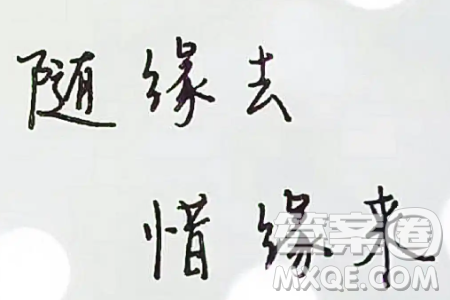 随缘去
惜缘来
答案圈
MXQE.COM